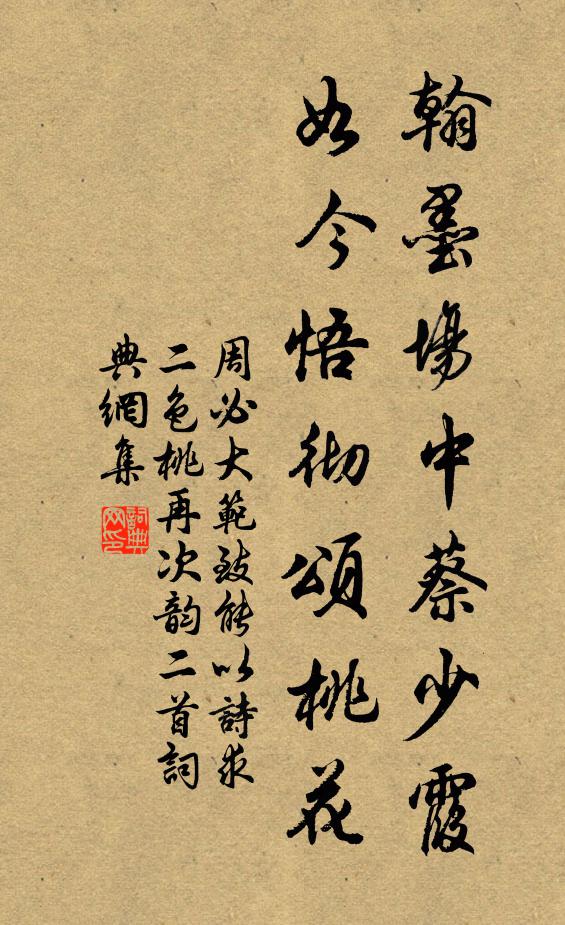 翰墨場中蔡少霞
如今悟彻頌桃花
周必大範致能以詩求
二色桃再次韵二首詞
典網集
詞典網印